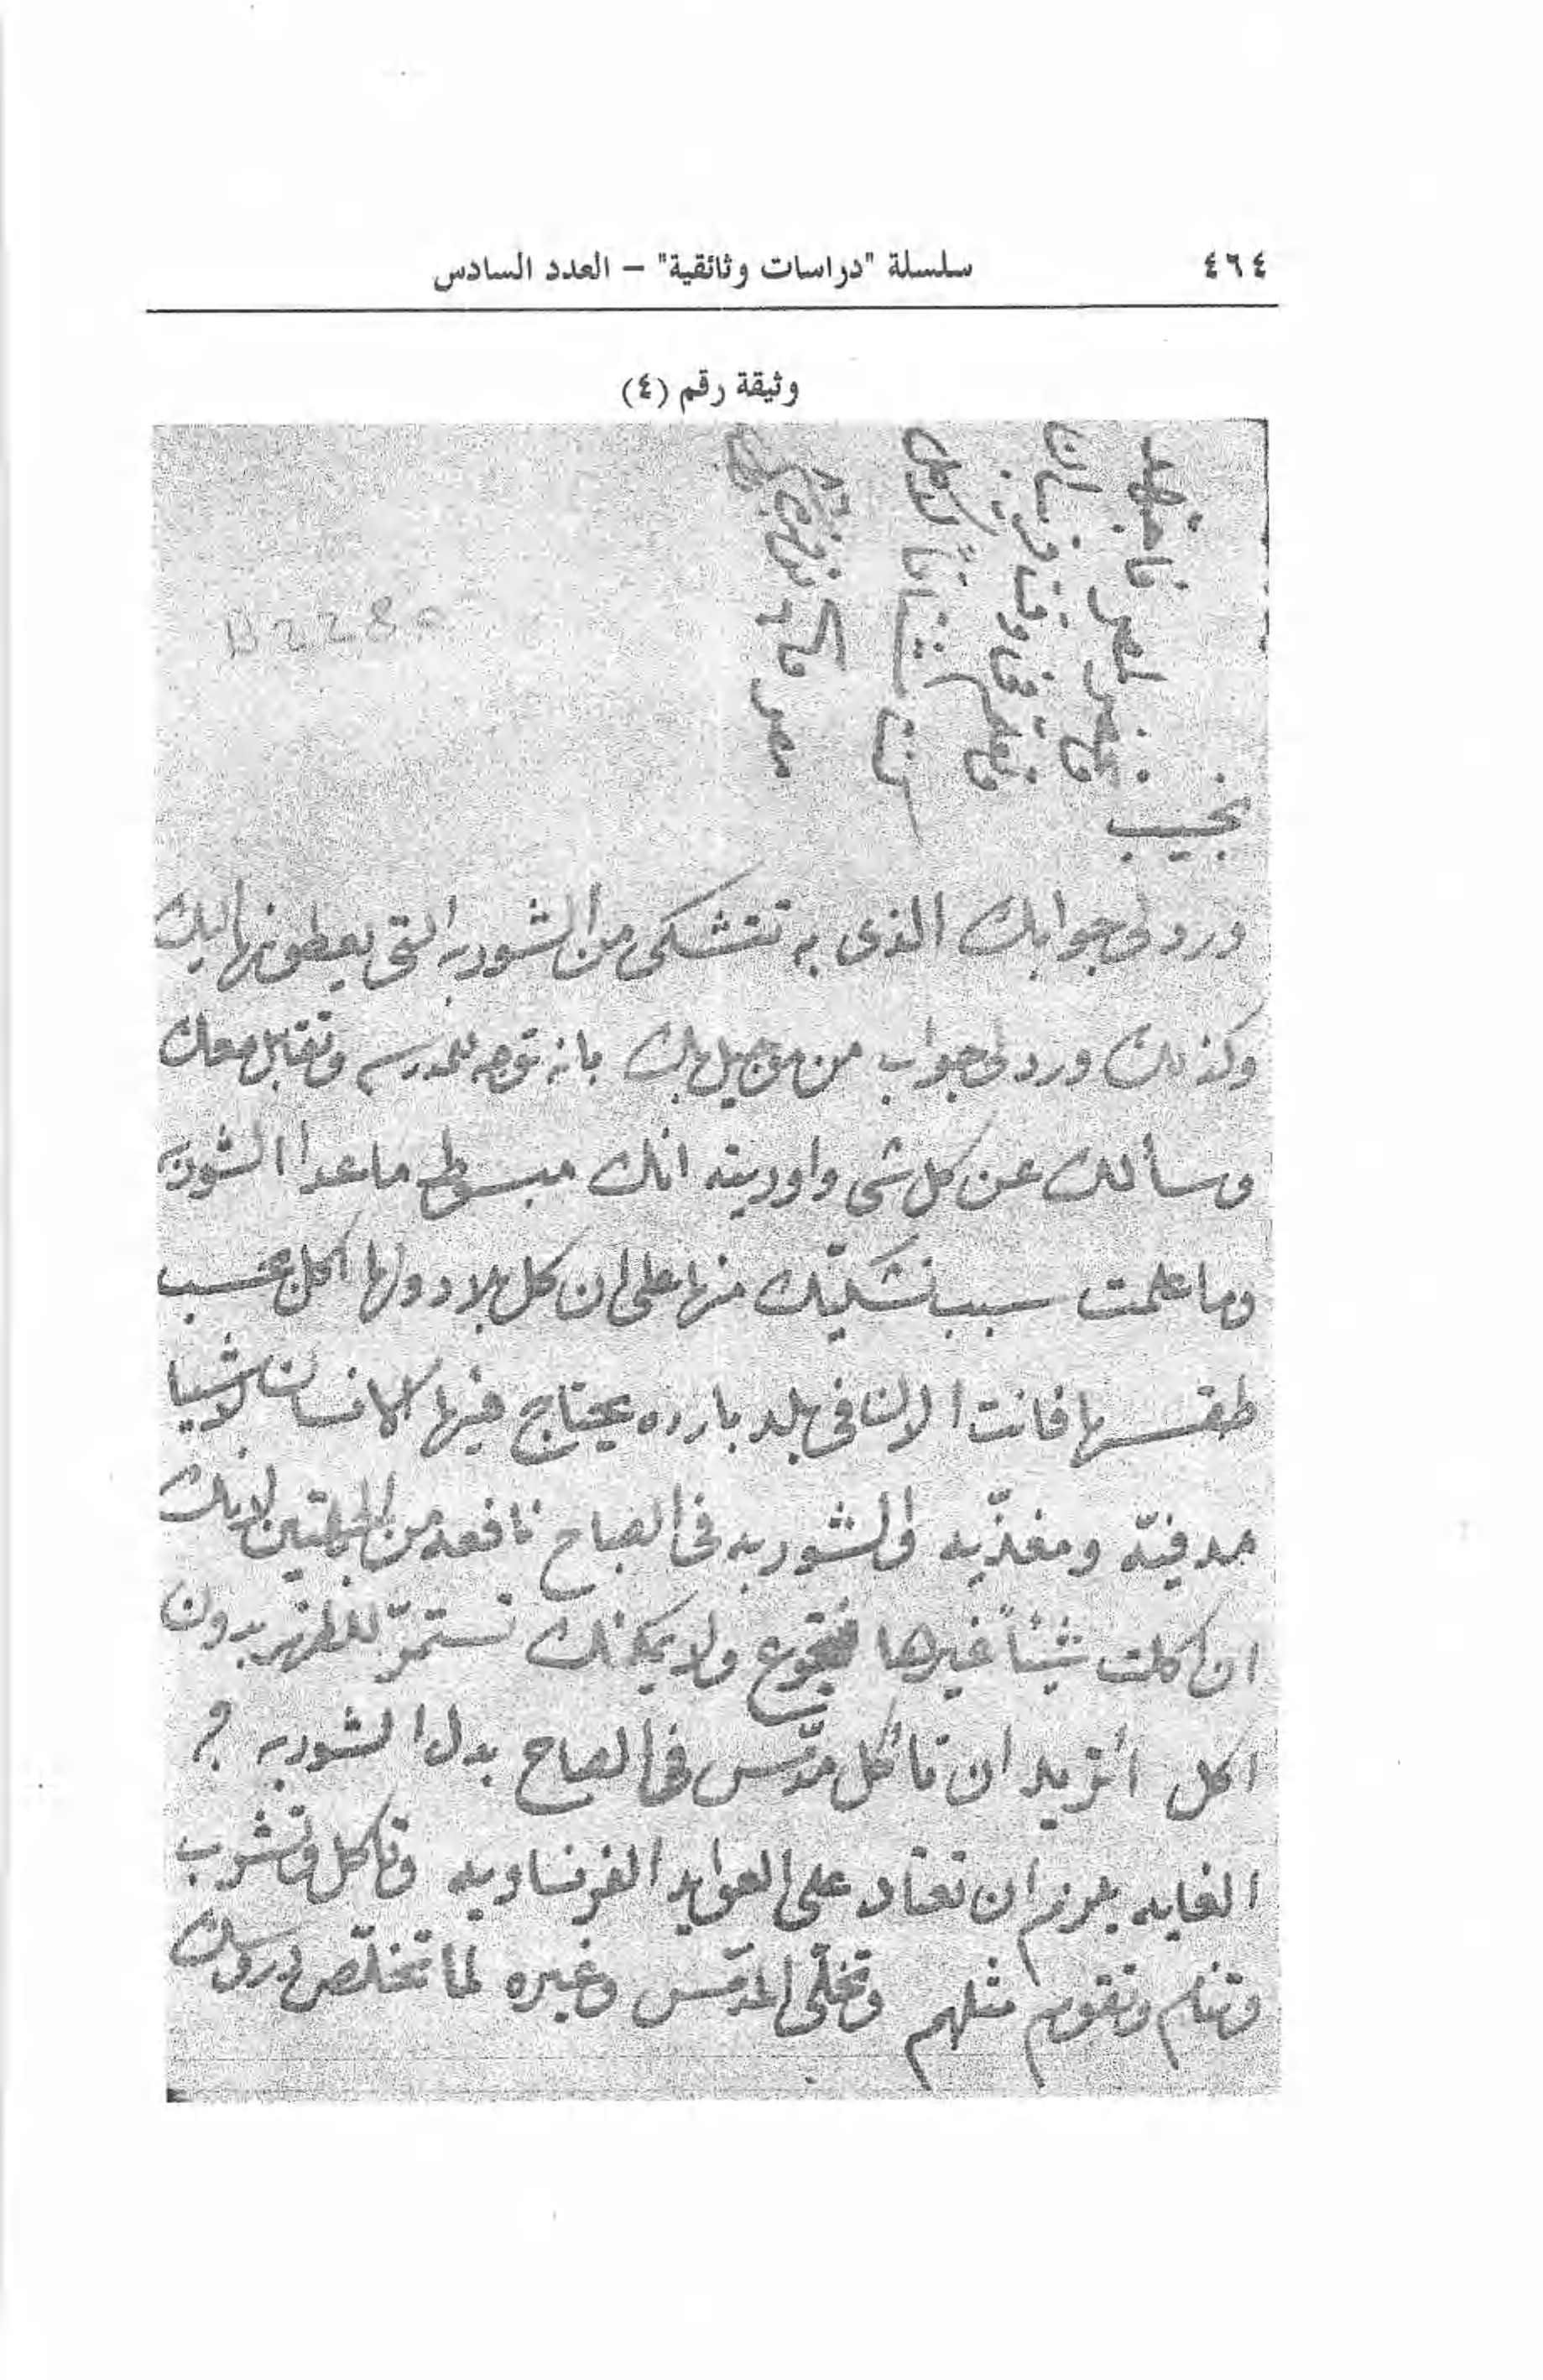 ٤٦٤
سلسلة "دراسات وثائقية" – العدد السادس
وثيقة رقم (٤)
B2280
نجيب
ورد لى جوابك الذى به تتشكى من الشوربه التى يعطونها اليك
وكذلك ورد لى جواب من موجيل بك بانه توجه للمدرسه وتقابل معك
وسألك عن كل شى واوريته انك مبسوط ماعدا الشوربه
وما علمت سبب تشكيك منها على ان كل بلاد ولها اكل بحسب
طقسها فانت الان فى بلد بارده يحتاج فيها الانسان لاشيا
مدفيّه ومغذّيه والشوربه فى الصباح نافعه من الجهتين لانك
ان اكلت شيئاً غيرها فتجوع ولا يمكنك تستمرّ للظهر بدون
اكل أتريد ان تأكل مدّمس فى الصباح بدل الشوربه ؟
الغايه يلزم ان تعتاد على العوايد الفرنساويه وتاكل وتشرب
وتنام وتقوم مثلهم وتخلّى المدمّس وغيره لما تخلّص دروسك